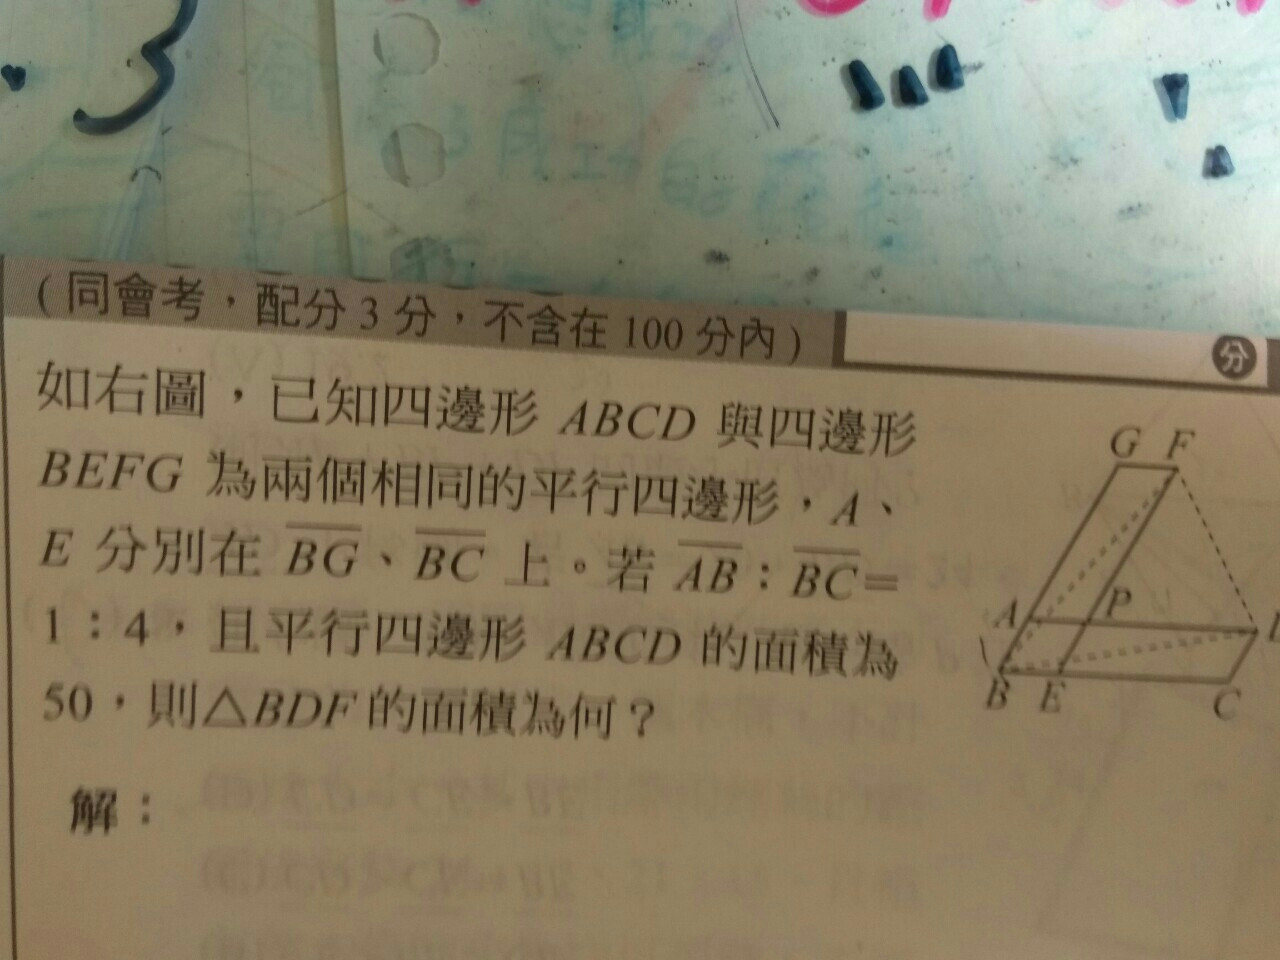 3
(同會考,配分 3 分,不含在 100 分內)
分
如右圖,已知四邊形 ABCD 與四邊形
BEFG 為兩個相同的平行四邊形,A、
E 分別在 BG、BC 上。若 AB:BC=
1:4,且平行四邊形 ABCD 的面積為
50,則△BDF 的面積為何?
解:
G F
A P
B E C